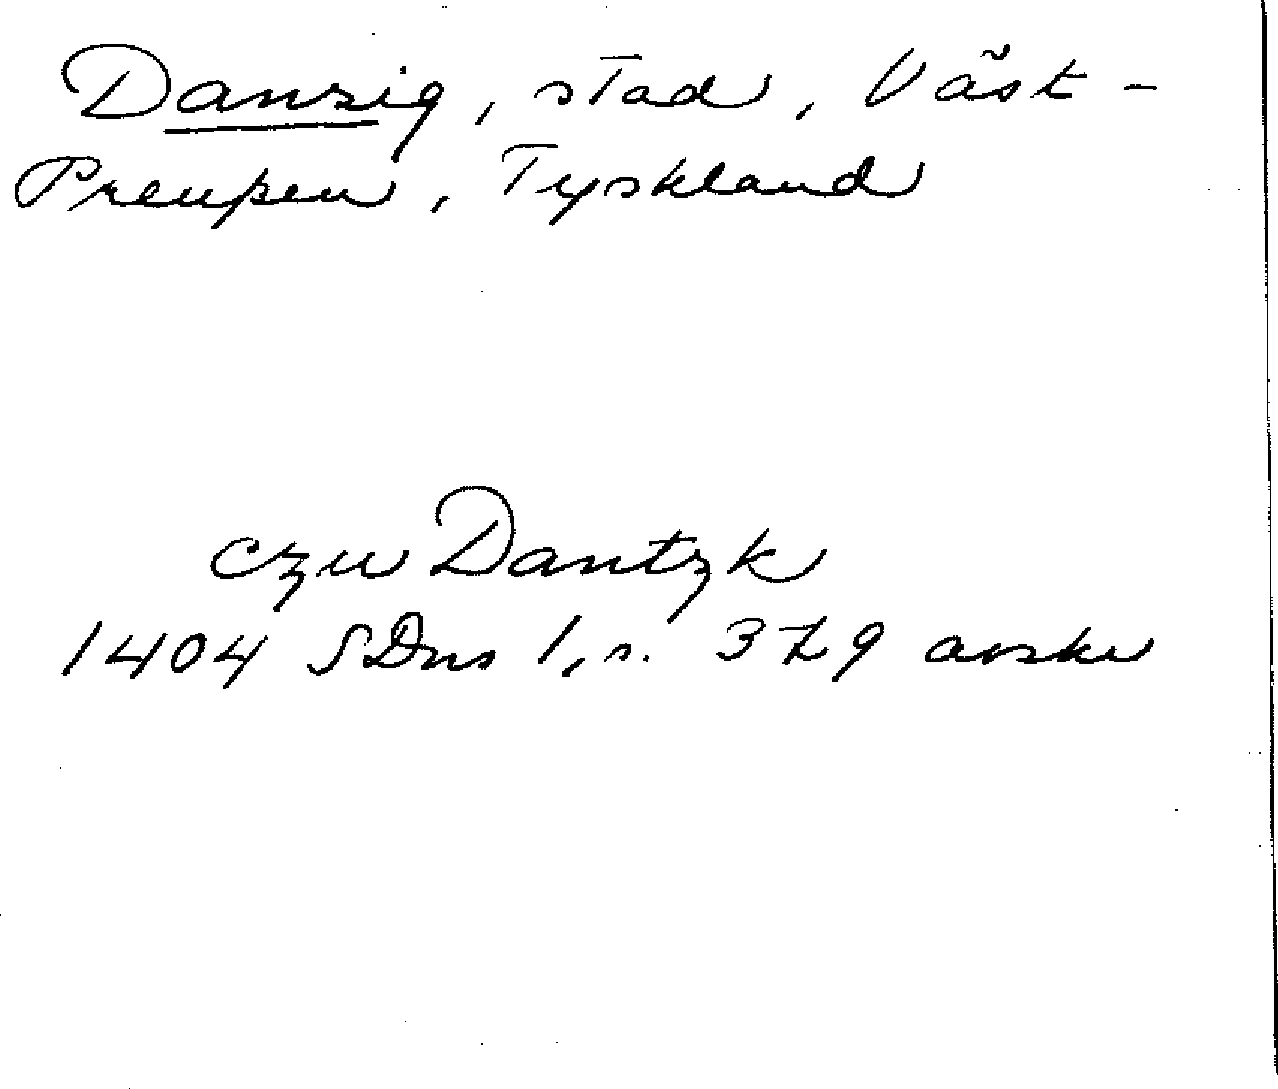 Danzig, stad, Väst-
Preußen, Tyskland
czu Dantzk
1404 SDns 1, s. 379 avskr